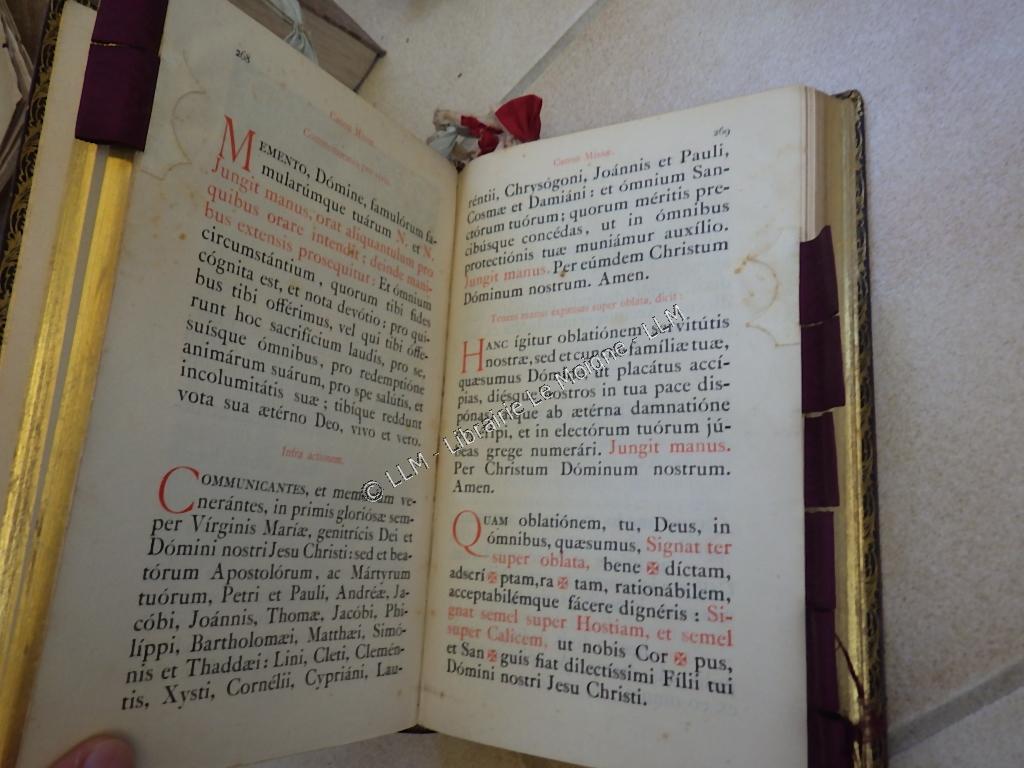 268
Canon Missæ.
Commemoratio pro vivis.
MEMENTO, Dómine, famulórum fa-
mularúmque tuárum N. et N.
Jungit manus, orat aliquantulum pro
quibus orare intendit: deinde mani-
bus extensis prosequitur: Et ómnium
circumstántium, quorum tibi fides
cógnita est, et nota devótio: pro qui-
bus tibi offérimus, vel qui tibi óffe-
runt hoc sacrifícium laudis, pro se,
suísque ómnibus, pro redemptióne
animárum suárum, pro spe salútis, et
incolumitátis suæ; tibíque reddunt
vota sua ætérno Deo, vivo et vero.
Infra actionem.
COMMUNICANTES, et memóriam ve-
nerántes, in primis gloriósæ sem-
per Vírginis Maríæ, genitrícis Dei et
Dómini nostri Jesu Christi: sed et bea-
tórum Apostolórum, ac Mártyrum
tuórum, Petri et Pauli, Andréæ, Ja-
cóbi, Joánnis, Thomæ, Jacóbi, Phi-
líppi, Bartholomæi, Matthæi, Simó-
nis et Thaddæi: Lini, Cleti, Clemén-
tis, Xysti, Cornélii, Cypriáni, Lau-
269
Canon Missæ.
réntii, Chrysógoni, Joánnis et Pauli,
Cosmæ et Damiáni: et ómnium San-
ctórum tuórum; quorum méritis pre-
cibúsque concédas, ut in ómnibus
protectiónis tuæ muniámur auxílio.
Jungit manus. Per eúmdem Christum
Dóminum nostrum. Amen.
Tenens manus expansas super oblata, dicit:
HANC ígitur oblatiónem servitútis
nostræ, sed et cunctæ famíliæ tuæ,
quæsumus Dómine, ut placátus accí-
pias, diésque nostros in tua pace dis-
pónas, atque ab ætérna damnatióne
nos éripi, et in electórum tuórum jú-
beas grege numerári. Jungit manus.
Per Christum Dóminum nostrum.
Amen.
QUAM oblatiónem, tu, Deus, in
ómnibus, quæsumus, Signat ter
super oblata, bene ✠ díctam,
adscri ✠ ptam, ra ✠ tam, rationábilem,
acceptabilémque fácere dignéris: Si-
gnat semel super Hostiam, et semel
super Calicem, ut nobis Cor ✠ pus,
et San ✠ guis fiat dilectíssimi Fílii tui
Dómini nostri Jesu Christi.
© LLM - Librairie Le Moione - LLM